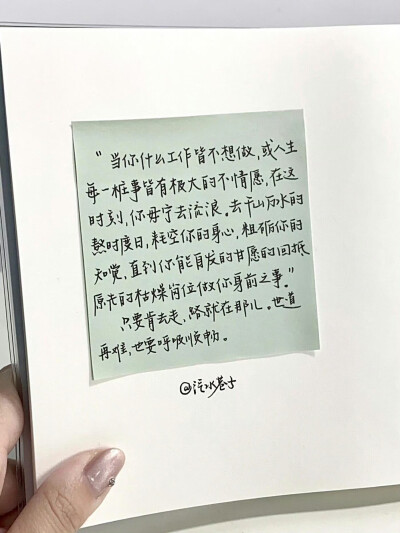 “当你什么工作皆不想做,或人生
每一桩事皆有极大的不情愿,在这
时刻,你毋宁去流浪。去千山万水的
熬时度日,耗空你的身心,粗砺你的
知觉,直到你能自发的甘愿的回抵
原先的枯燥岗位做你身前之事。”
只要肯去走,路就在那儿。世道
再难,也要呼吸顺畅。
@汽水巷子